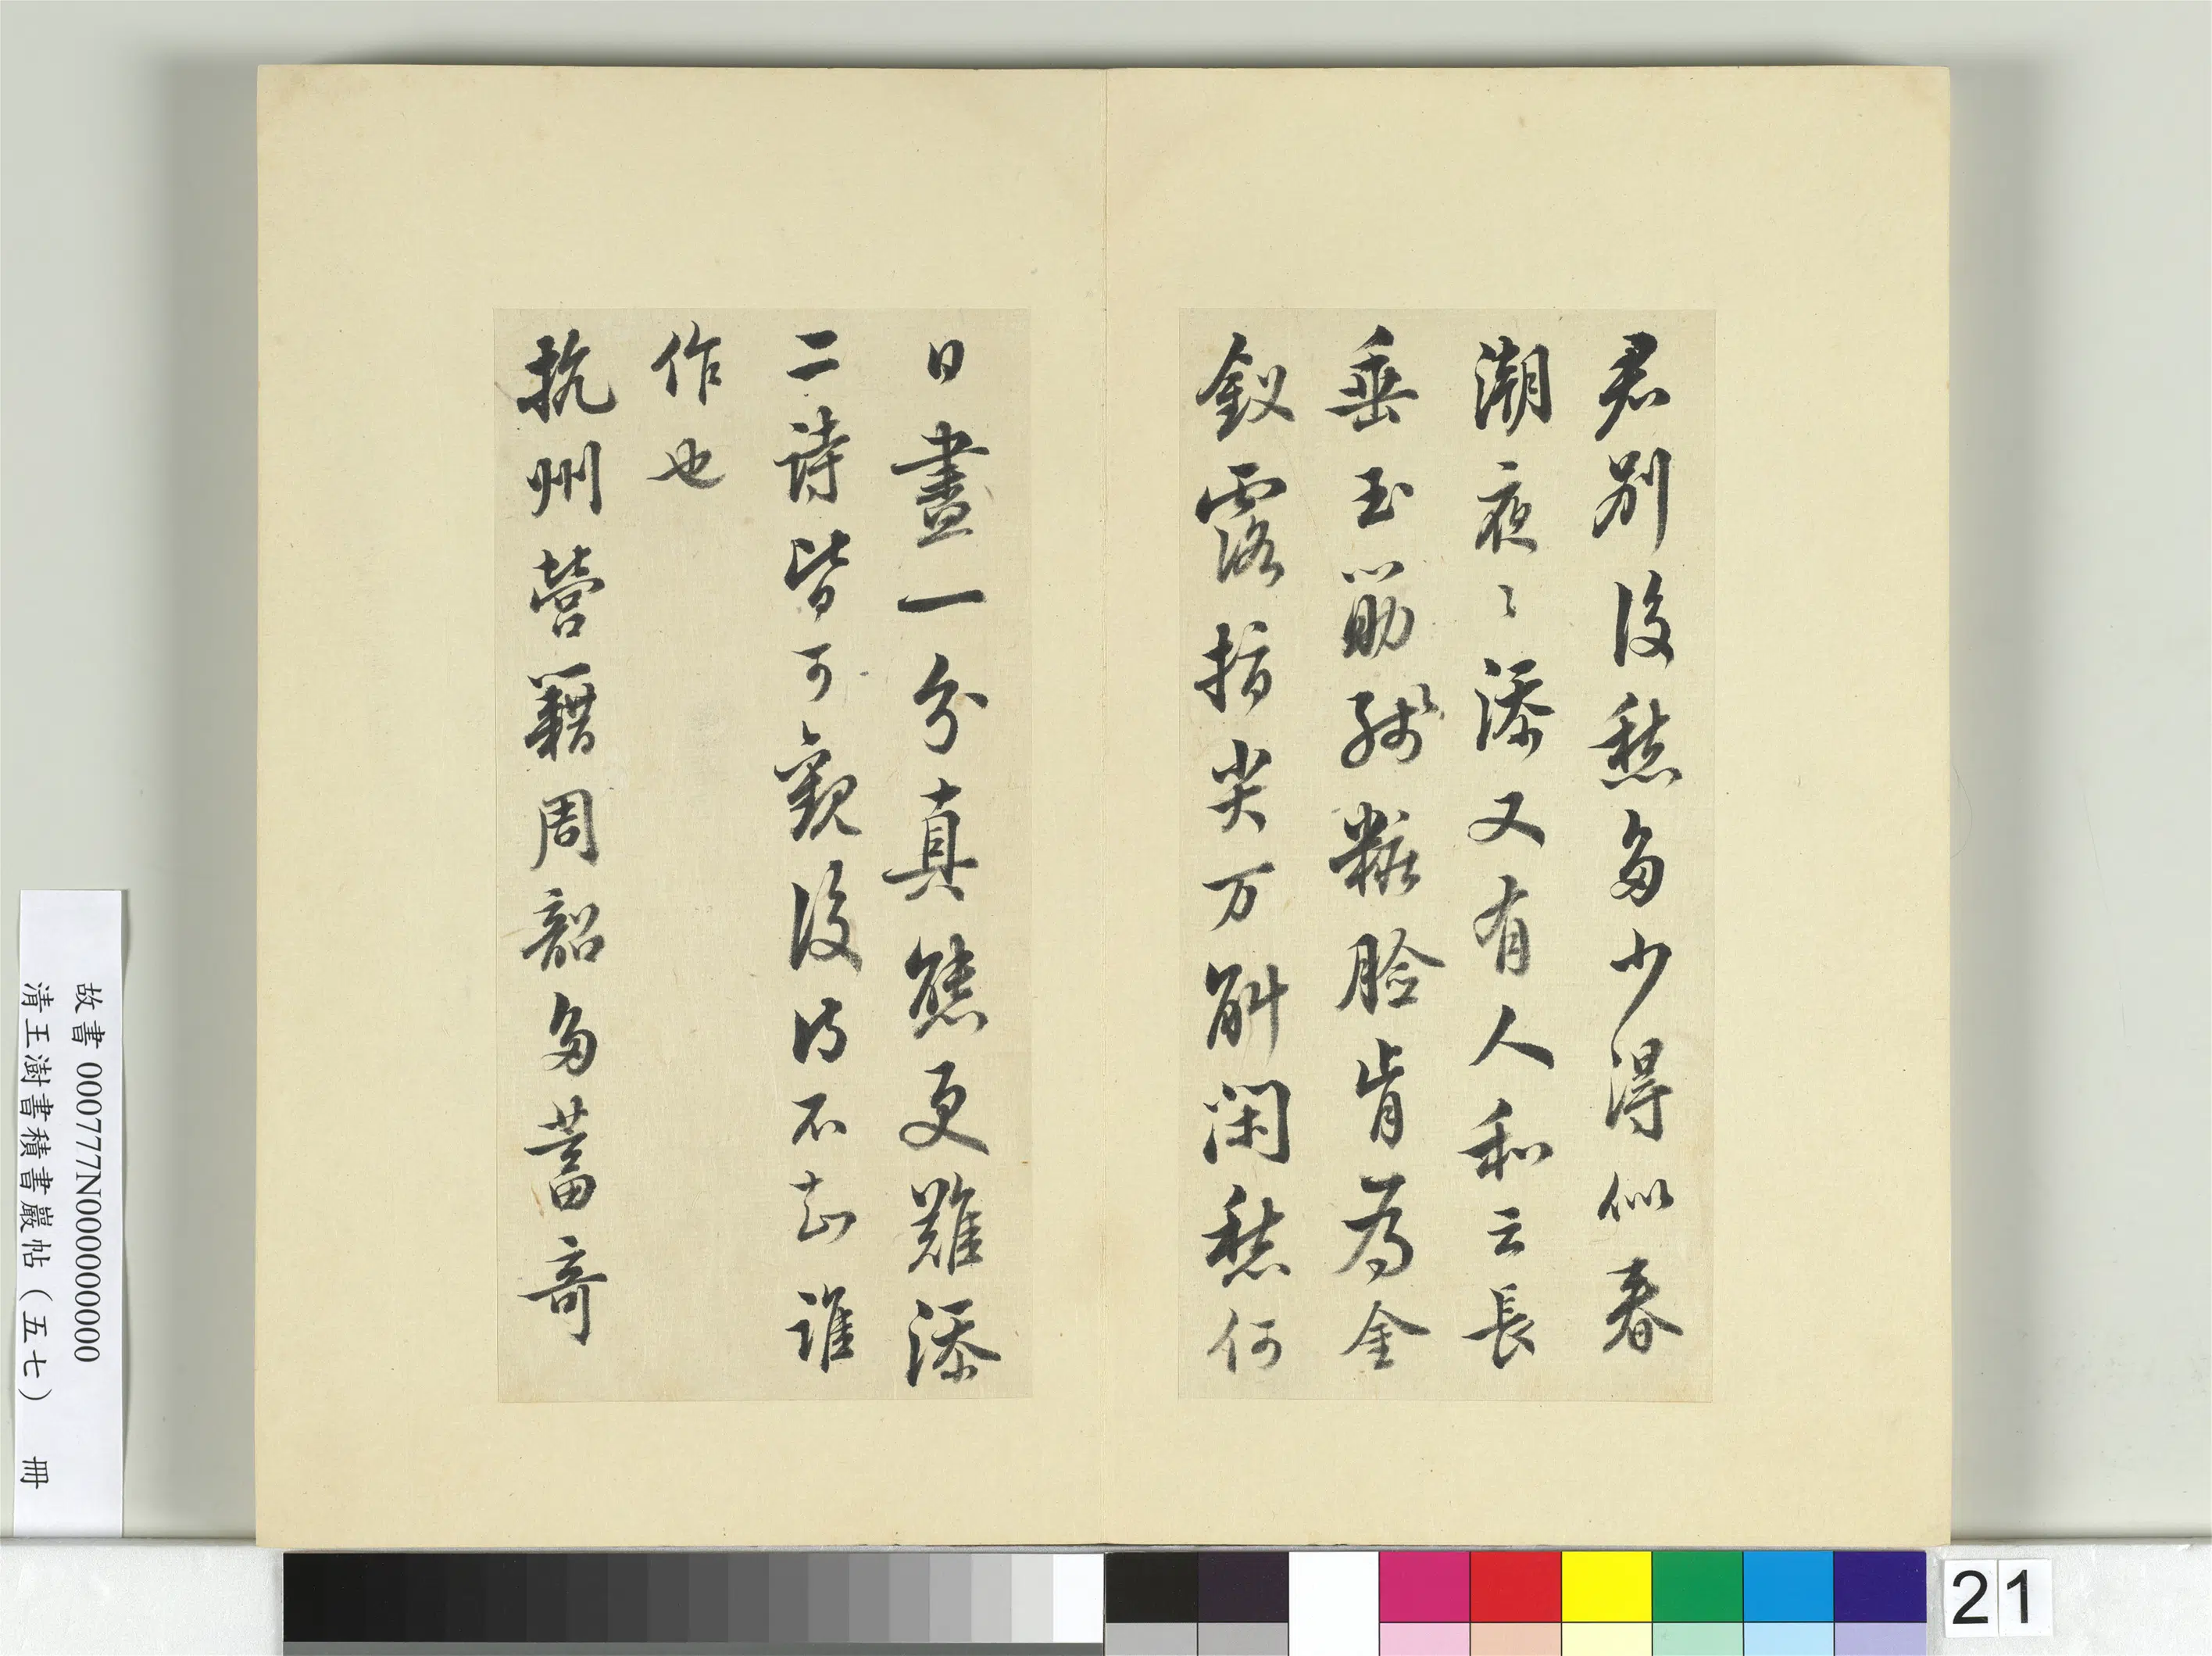 君別後愁多少得似春
潮夜〻添又有人和云長
垂玉筯殘粧臉肯為金
釵露指尖万斛閑愁何
日盡一分真態更難添
二詩皆可觀後詩不知誰
作也
杭州營籍周韶多蓄奇
故書 000777N000000000
清王澍書積書巖帖（五七） 冊
21